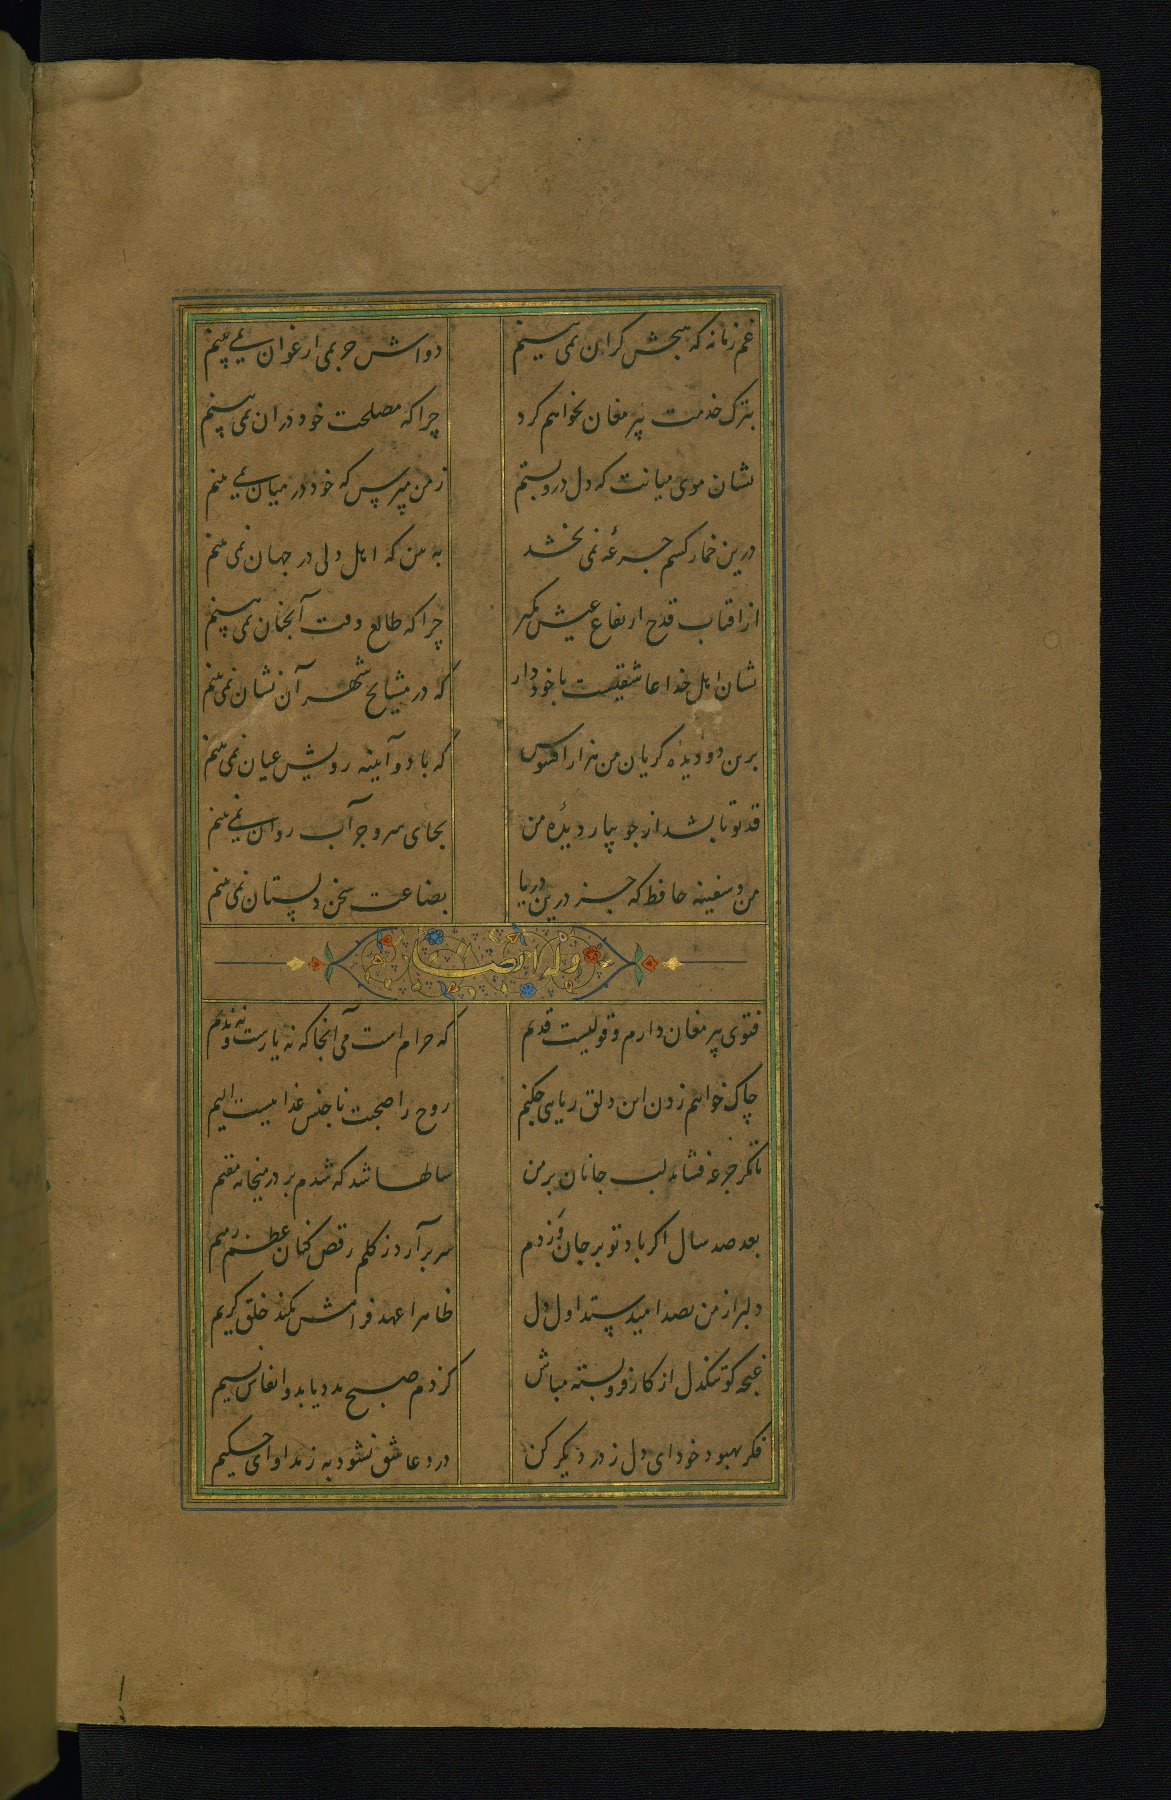 غم زمانه که هیچش کران نمی بینم دواش جز می ارغوان نمی بینم
بترک خدمت پیر مغان نخواهم کرد چرا که مصلحت خود در ان نمی بینم
نشان موی میانت که دل درو بستم ز من مپرس که خود در میان نمی بینم
درین خمار کسم جرعهٔ نمی بخشد به بین که اهل دلی در جهان نمی بینم
از افتاب قدح ارتفاع عیش بگیر چرا که طالع وقت آنچنان نمی بینم
نشان اهل خدا عاشقیست با خود دار که در مشایخ شهر آن نشان نمی بینم
برین دو دیدهٔ گریان من هزار افسوس که با دو آینه رویش عیان نمی بینم
قد تو تا بشد از جویبار دیدهٔ من بجای سرو جز آب روان نمی بینم
من و سفینه حافظ که جز درین دریا بضاعت سخن دلستان نمی بینم
وله ایضا
فتوی پیر مغان دارم و قولیست قدیم که حرام است می آنجا که نه یارست و نه ندیم
چاک خواهم زدن این دلق ریایی چکنم روح را صحبت ناجنس عذابیست الیم
تا مگر جرعه فشاند لب جانان بر من سالها شد که شدم بر در میخانه مقیم
بعد صد سال اگر باد تو بر جان وزدم سر برآرد ز گلم رقص کنان عظم رمیم
دلبر از من بصد امید ستد اول دل ظاهرا عهد فرامش نکند خلق کریم
غنچه گو تنگدل از کار فروبسته مباش کز دم صبح مدد یابد و انفاس نسیم
فکر بهبود خود ای دل ز در دیگر کن درد عاشق نشود به ز مداوای حکیم